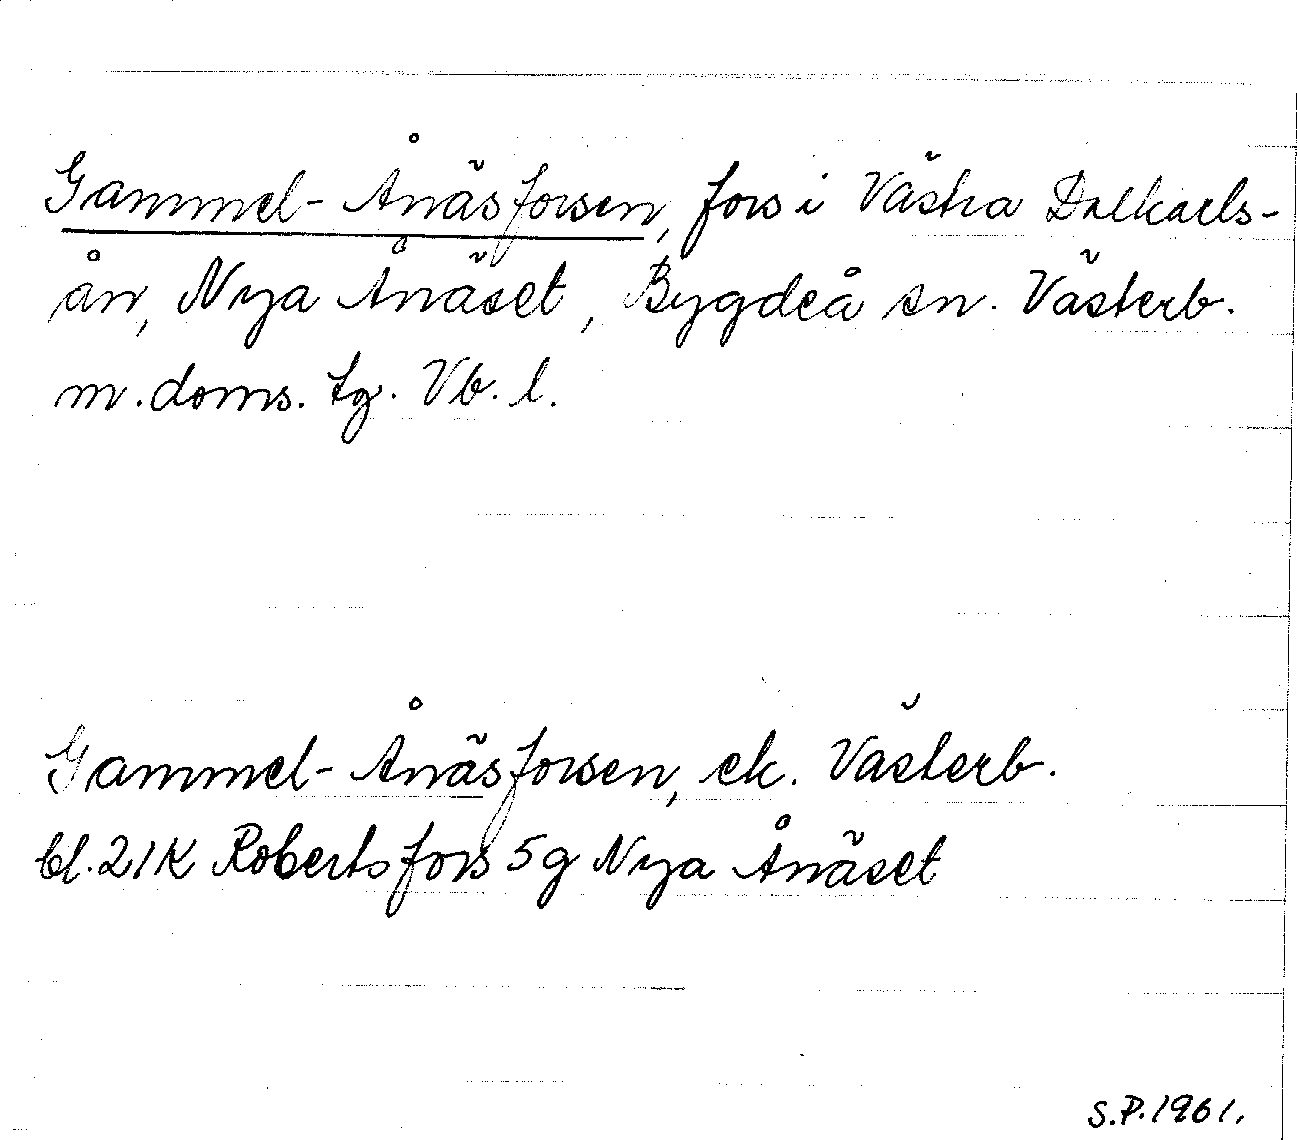 Gammel-Ånäsforsen, fors i Västra Dalkarls-
ån, Nya Ånäset, Bygdeå sn. Västerb.
m. doms. tg. Vb. l.
Gammel-Ånäsforsen, ek. Västerb.
bl. 21K Robertsfors 5g Nya Ånäset
S.P. 1961.